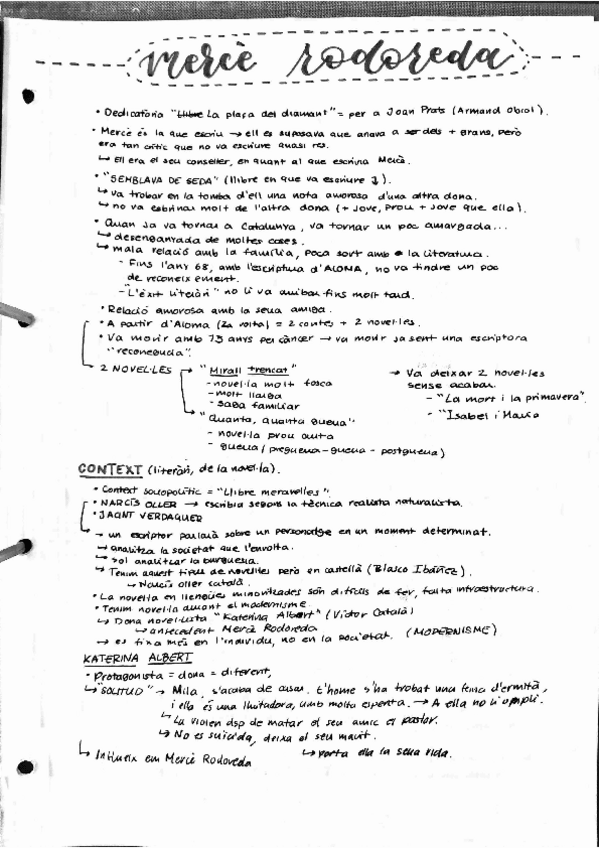 mercè rodoreda
• Dedicatòria "Llibre La plaça del diamant" = per a Joan Prats (Armand Obiol).
• Mercè és la que escriu → ell es suposava que anava a ser dels + grans, però
era tan crític que no va escriure quasi res.
↳ Ell era el seu conseller, en quant al que escriuria Mercè.
• "SEMBLAVA DE SEDA" (llibre en que va escriure ↓).
↳ va trobar en la tomba d'ell una nota amorosa d'una altra dona.
↳ no va esbrinar molt de l'altra dona (+ jove, prou + jove que ella).
• Quan ja va tornar a Catalunya, va tornar un poc amargada...
↳ desenganyada de moltes coses.
↳ mala relació amb la família, poca sort amb la literatura.
- Fins l'any 68, amb l'escriptura d'ALOMA, no va tindre un poc
de reconeixement.
- "L'èxit literàri" no li va arribar fins molt tard.
• Relació amorosa amb la seua amiga.
• A partir d'Aloma (2a volta) = 2 contes + 2 novel·les.
• Va morir amb 73 anys per càncer → va morir ja sent una escriptora
"reconeguda".
↳ 2 NOVEL·LES → "Mirall trencat"
- novel·la molt fosca
- molt llarga
- saga familiar
→ "Quanta, quanta guerra"
- novel·la prou curta
- guerra (preguerra - guerra - postguerra)
→ Va deixar 2 novel·les
sense acabar.
- "La mort i la primavera".
- "Isabel i Maria
CONTEXT (literàri, de la novel·la).
• Context sociopolític = "Llibre meravelles".
• NARCÍS OLLER → escribia segons la tècnica realista naturalista.
• JACINT VERDAGUER
→ un escriptor parlarà sobre un personatge en un moment determinat.
↳ analitza la societat que l'envolta.
↳ Sol analitzar la burguesia.
↳ Tenim aquest tipus de novel·les però en castellà (Blasco Ibáñez).
↳ Narcís Oller català.
• La novel·la en llengües minoritzades són difícils de fer, falta infraestructura.
• Tenim novel·la durant el modernisme.
↳ Dona novel·lista "Katerina Albert" (Víctor Català)
↳ antecedent Mercè Rodoreda
→ es fixa més en l'individu, no en la societat. (MODERNISME)
KATERINA ALBERT
• Protagonista = dona = diferent,
↳ "SOLITUD" → Mila, s'acaba de casar. L'home s'ha trobat una feina d'ermità,
i ella és una lluitadora, amb molta espenta. → A ella no li ompli.
↳ La violen dsp de matar el seu amic el pastor.
↳ No es suicida, deixa el seu marit.
↳ porta ella la seua vida.
↳ Influeix em Mercè Rodoreda